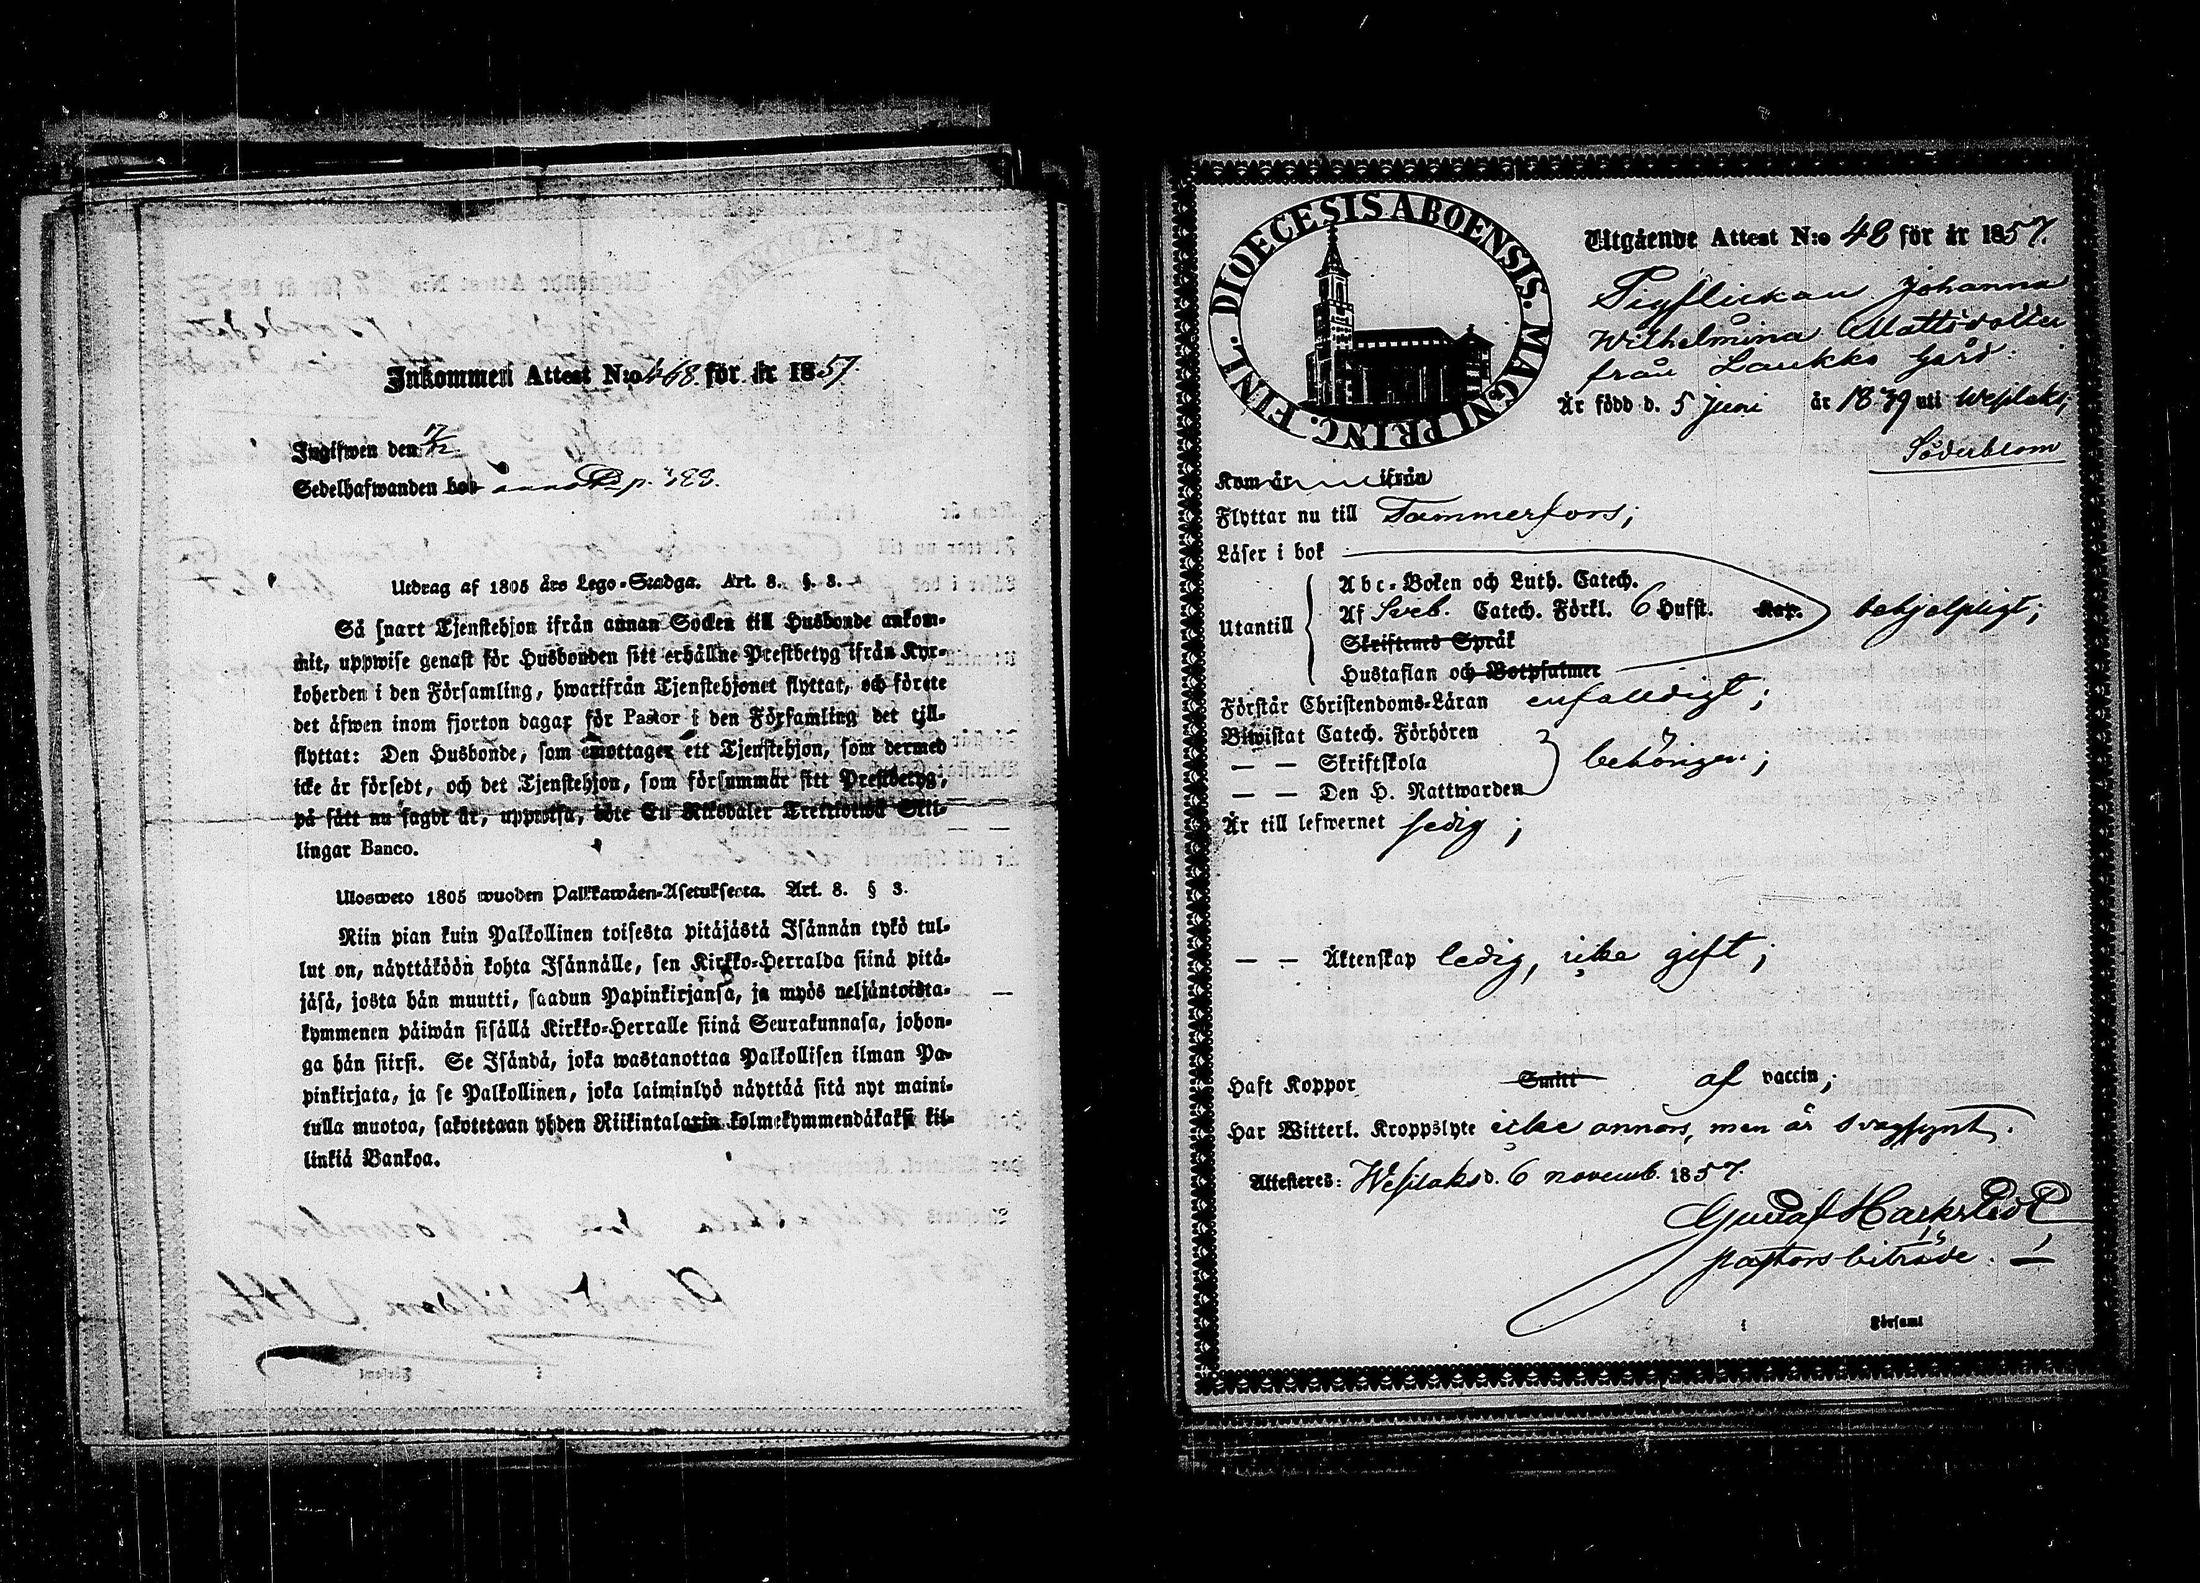 Inkommen Attest N:o 468. för år 1857.
Ingifwen den 17/12.
Sedelhafwanden hos anna p. 388.
Utdrag af 1805 års Lego-Stadga. Art. 8. §. 3.
Så snart Tjenstehjon ifrån annan Socken till Husbonde ankom-
mit, uppwise genast för Husbonden sitt erhållne Prestbetyg ifrån Kyr-
koherden i den Församling, hwarifrån Tjenstehjonet flyttat, och förete
det äfwen inom fjorton dagar för Pastor i den Församling det till-
flyttat: Den Husbonde, som emottager ett Tjenstehjon, som dermed
icke är försedt, och det Tjenstehjon, som försummar sitt Prestbetyg,
på sätt nu sagdt är, uppwisa, böte En Riksdaler Trettiotwå Skil-
lingar Banco.
Ulosweto 1805 wuoden Palkkawäen-Asetuksesta. Art. 8. § 3.
Niin pian kuin Palkollinen toisesta pitäjästä Isännän tykö tul-
lut on, näyttäköön kohta Isännälle, sen Kirkko-Herralda siinä pitä-
jäsä, josta hän muutti, saadun Papinkirjansa, ja myös neljäntoista-
kymmenen päiwän sisällä Kirkko-Herralle siinä Seurakunnasa, johon-
ga hän siirsi. Se Isändä, joka wastanottaa Palkollisen ilman Pa-
pinkirjata, ja se Palkollinen, joka laiminlyö näyttää sitä nyt maini-
tulla muotoa, sakotetaan yhden Riikintalarin kolmekymmendäkaksi kil-
linkiä Bankoa.
DIOECESIS ABOENSIS. MAGNI PRINC. FINL.
Utgående Attest N:o 48 för år 1857.
Pigflickan Johanna
Wilhelmina Mattsdotter
från Laukko Gård.
Är född d. 5 Juni år 1839 uti Wesilaks,
Söderblom
Kom år ifrån
Flyttar nu till Tammerfors;
Läser i bok
Utantill
Abc-Boken och Luth. Catech.
Af Sveb. Catech. Förkl. 6 Hufst. Kap. behjelpligt;
Skriftenes Språk
Hustaflan och Botpsalmer
Förstår Christendoms-Läran enfalldigt;
Biwistat Catech. Förhören
— — Skriftskola behörigen;
— — Den H. Nattwarden
Är till lefwernet sedig;
— — Äktenskap ledig, icke gift;
Haft Koppor Smitt af vaccin;
Har Witterl. Kroppslyte icke annors, men är svagsynt.
Attesteres: Wesilaks d. 6 novemb. 1857.
Gustaf
pastorsbiträde.
i Församl